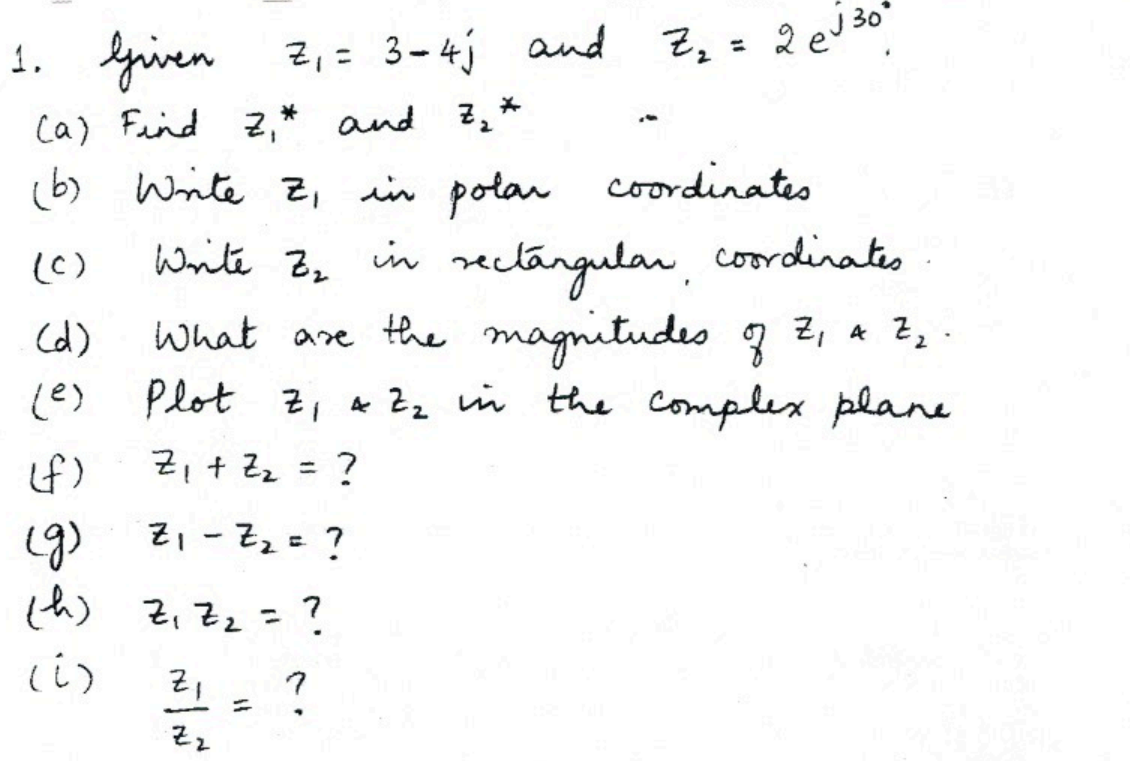 1. Given z₁ = 3-4j and z₂ = 2 e^{j30°}.
(a) Find z₁* and z₂*
(b) Write z₁ in polar coordinates
(c) Write z₂ in rectangular coordinates.
(d) What are the magnitudes of z₁ & z₂.
(e) Plot z₁ & z₂ in the complex plane
(f) z₁ + z₂ = ?
(g) z₁ - z₂ = ?
(h) z₁ z₂ = ?
(i) z₁/z₂ = ?